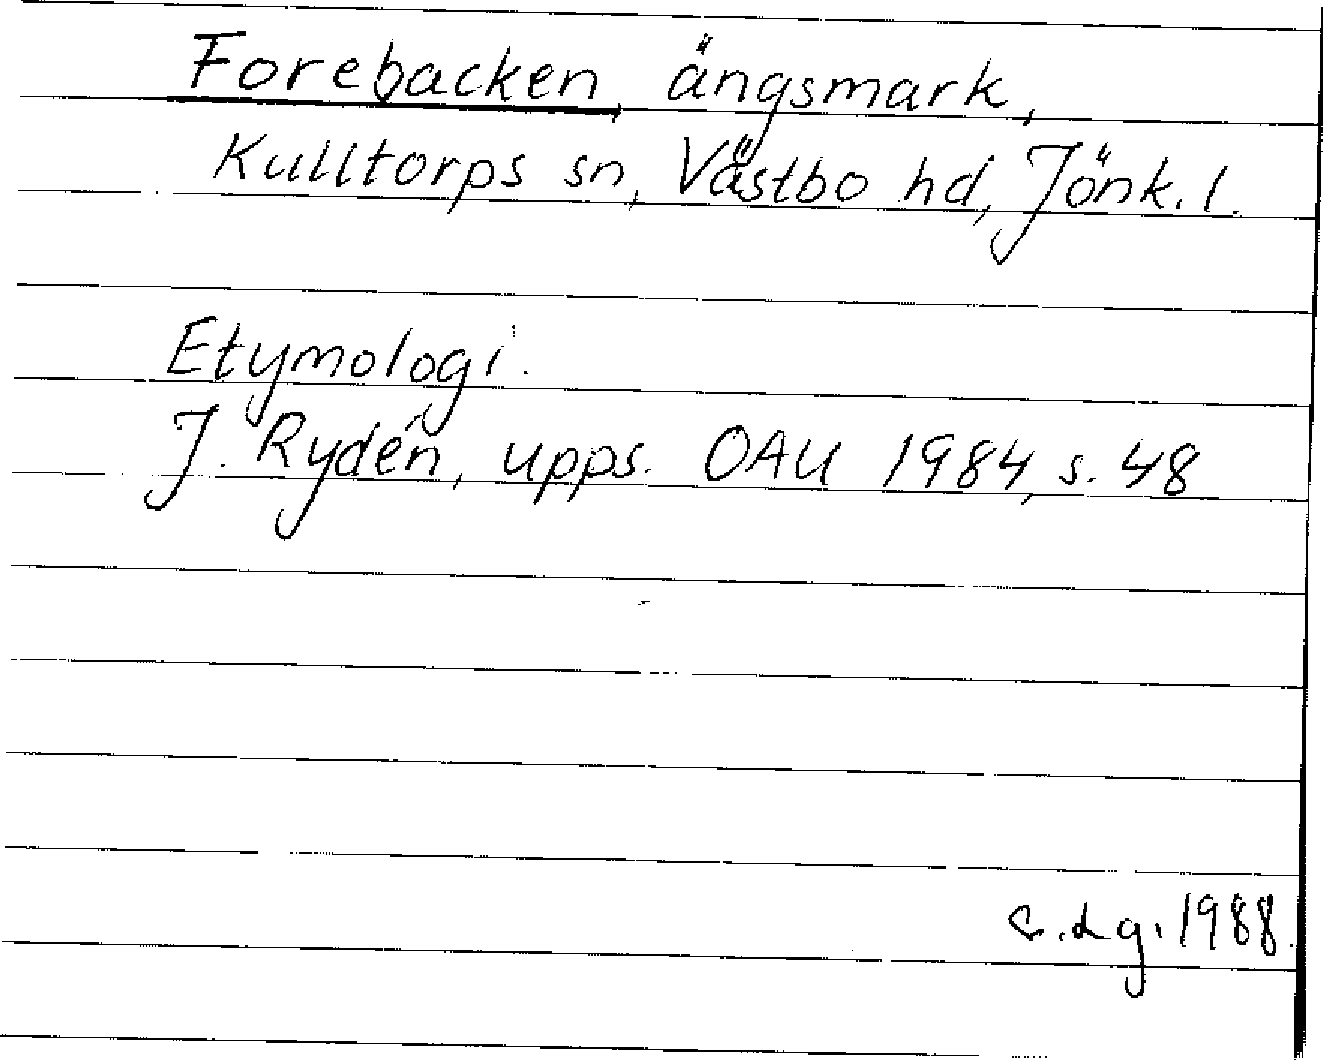 Forebacken, ängsmark,
Kulltorps sn, Västbo hd, Jönk. l.
Etymologi.
J. Rydén, upps. OAU 1984, s. 48
1988.